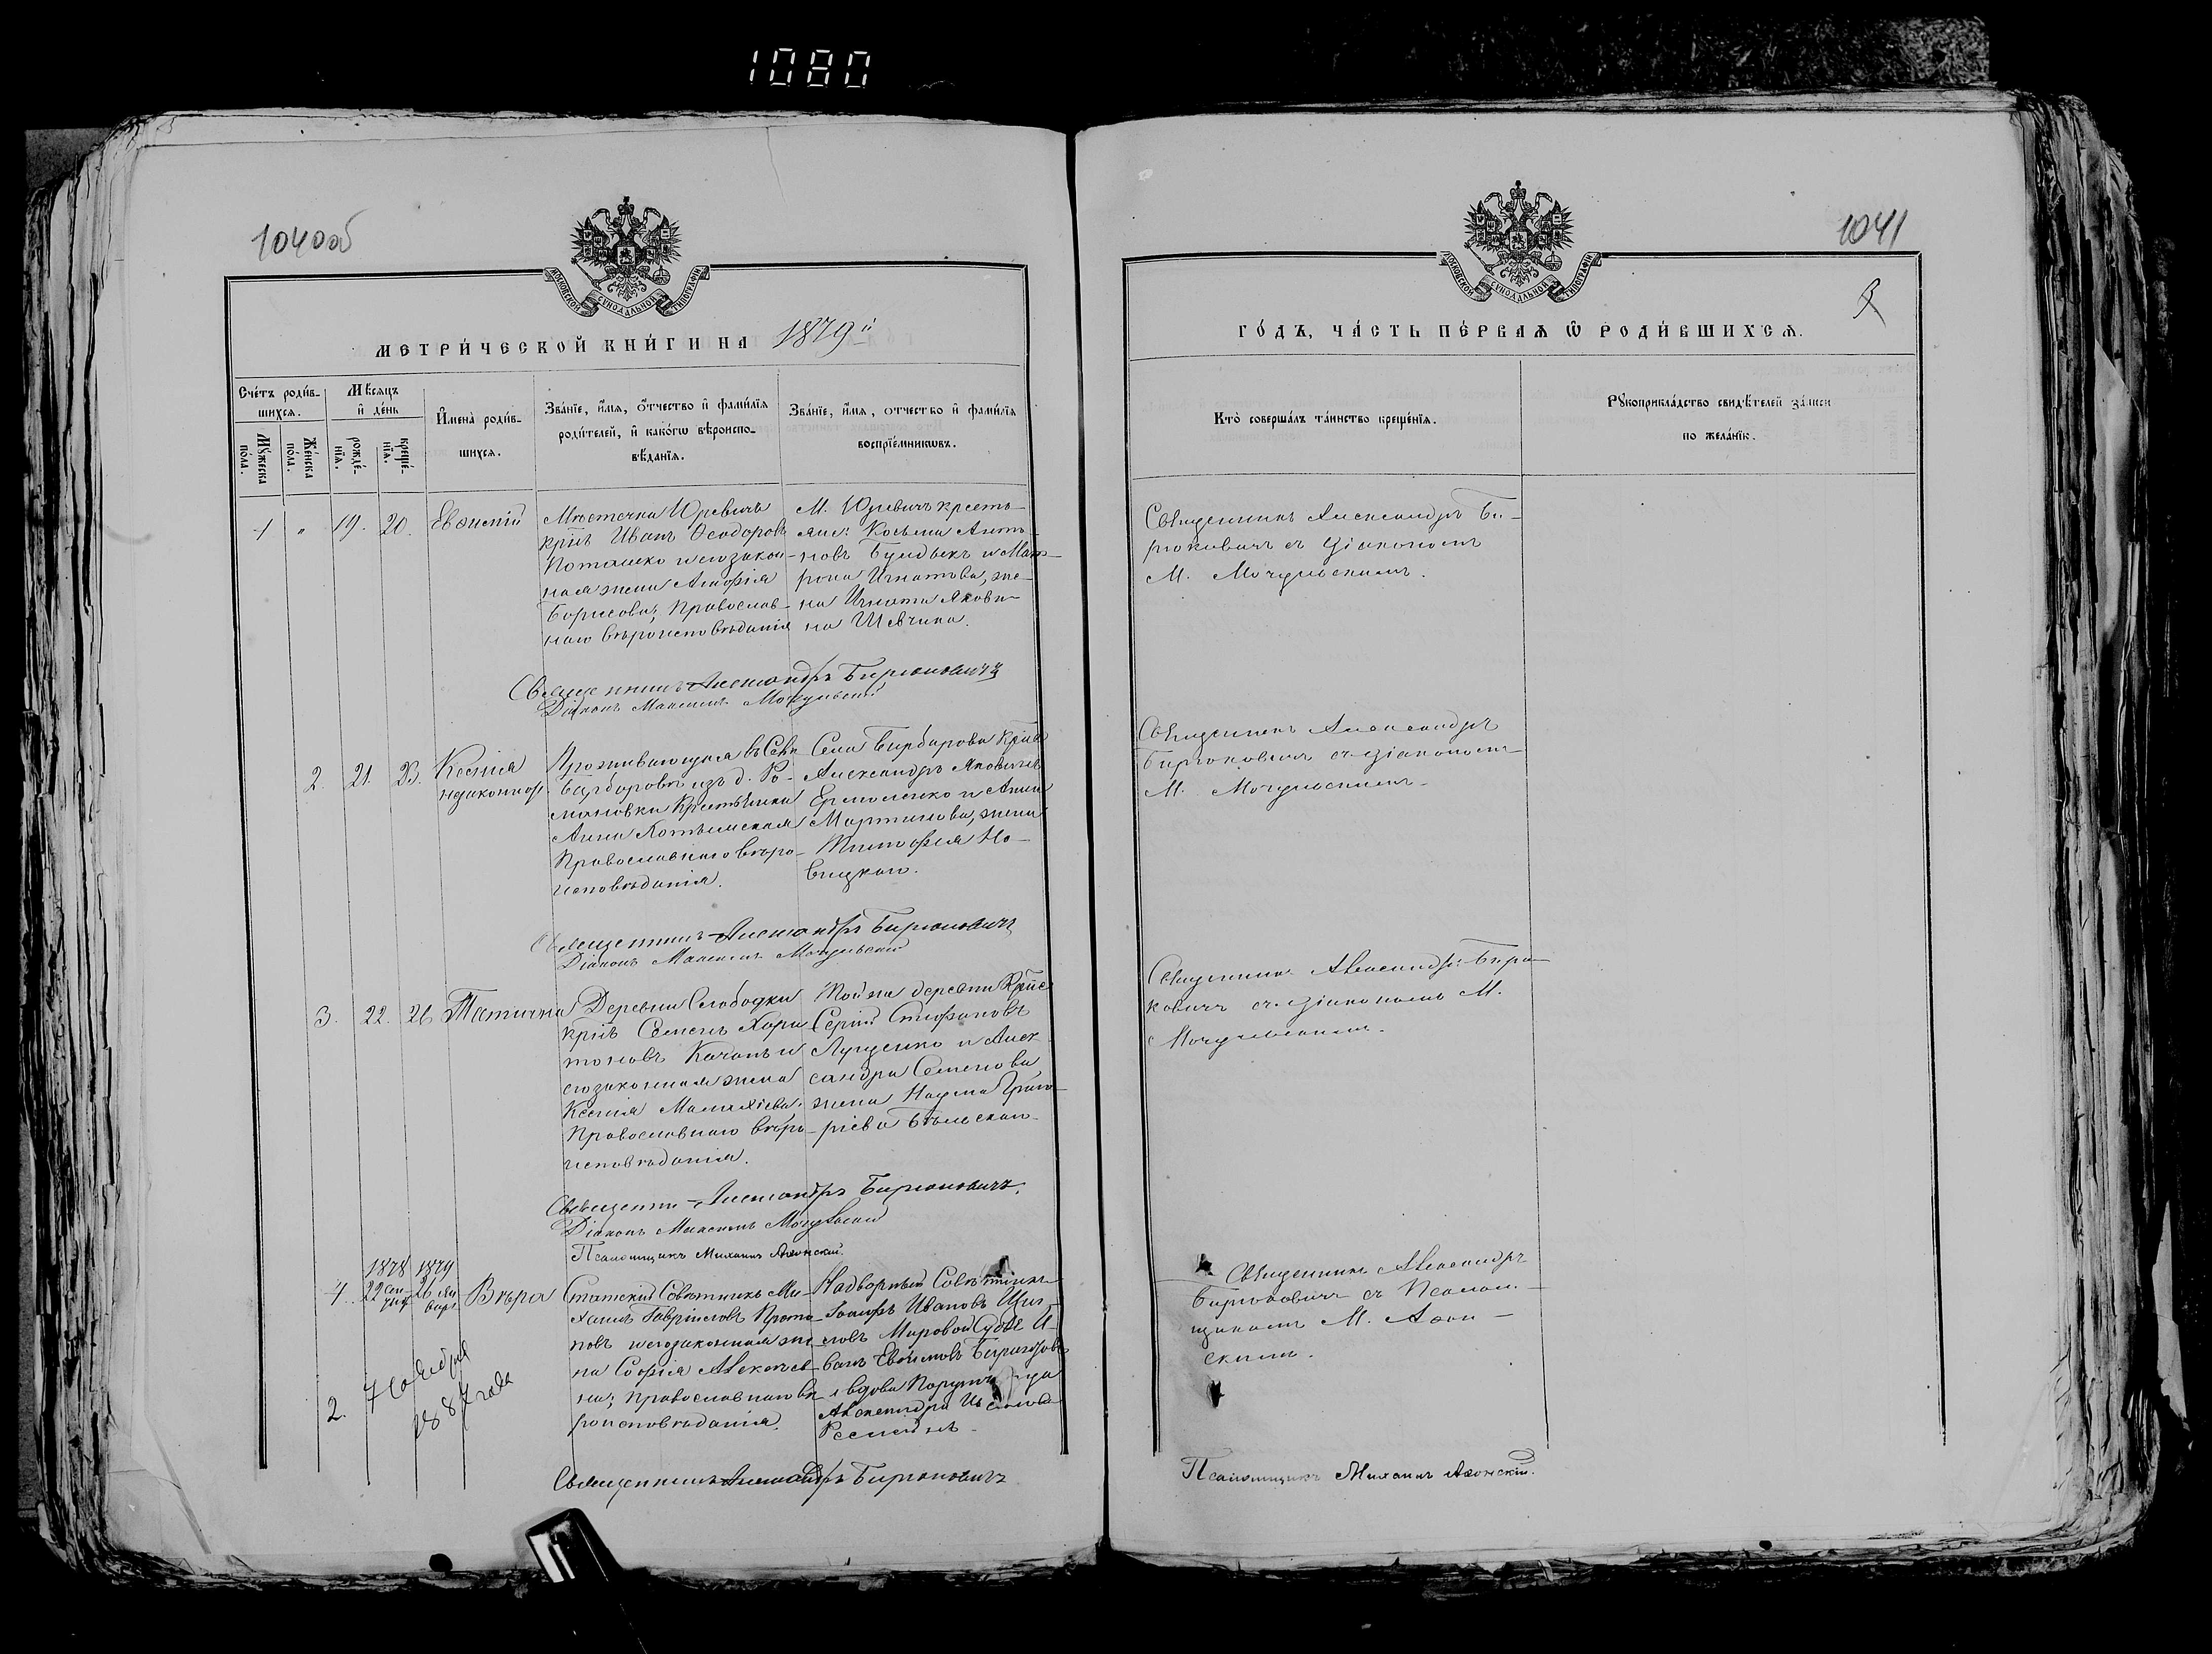 1080
1040об
1041
МОСКОВСКОЙ СѴНОДАЛЬНОЙ ТИПОГРАФІИ
МОСКОВСКОЙ СѴНОДАЛЬНОЙ ТИПОГРАФІИ
МЕТРИ́ЧЕСКОЙ КНИ́ГИ НА 1879й
Счётъ роди́в-
шихся.
Мѣ́сяцъ
и҆ де́нь
Мꙋ́жеска
по́ла.
Же́нска
по́ла.
рожде́-
нїѧ.
креще́-
нїѧ.
И҆мена̀ роди́в-
шихся.
Зва́нїе, и҆́мѧ, ѻ҆́тчество и҆ фами́лїѧ
роди́телей, и҆ како́гѡ вѣроиспо-
вѣ́данїѧ.
Зва́нїе, и҆́мѧ, отчество и҆ фами́лїѧ
воспрїе́мникѡвъ.
1 " 19. 20. Евѳимій
Мѣстечка Юревичъ
крнъ Иванъ Ѳеодоровъ
и его закон-
ная жена Агафія
Борисова, православ-
наго вѣроисповѣданія
М. Юревичъ кресть-
яне: Косьма Анто-
новъ и Мат-
рона Игнатова, же-
на Игната Якови-
на Шевчика.
Священникъ Александръ Бирюковичъ
Діаконъ Максимъ Мочульскій
2. 21. 23. Ксенія
незаконнор.
Проживающая въ Селѣ
Барбаровѣ изъ д. Ро-
мановки крестьянка
Анна
Православнаго вѣро-
исповѣданія.
Села Барбарова крне
Александръ Яковлевъ
Ермоленко и Анна
Мартинова, жена
Тимофея Но-
вицкаго.
Священникъ Александръ Бирюковичъ
Діаконъ Максимъ Мочульскій
3. 22. 26 Татіана
Деревни Слободки
крнъ Семенъ Хари-
тоновъ Качанъ и
его законная жена
Ксенія Малахіева,
Православнаго вѣро-
исповѣданія.
Той же деревни крне
Сергій Стефановъ
Луценко и Алек
сандра Семенова
жена Наума Григо-
ріева Бѣльскаго
Священникъ Александръ Бирюковичъ.
Діаконъ Максимъ Мочульскій
Псаломщикъ Михаилъ Аѳонскій.
1878 1879
4. 22 26 Вѣра
Статскій Совѣтникъ Ми-
хаилъ Гавріиловъ Прото-
повъ и его законная же-
на Софія Алексѣев-
на; православнаго вѣ-
роисповѣданія.
Надворный Совѣтникъ
Іосифъ Ивановъ
Мировой Судья И-
ванъ Евѳимовъ
и вдова
Александра
2. 7 Ноября
1887 года
Священникъ Александръ Бирюковичъ
ГО́ДЪ, ЧА́СТЬ ПЕ́РВАѦ Ѿ РОДИ́ВШИХСѦ.
Кто̀ соверша́лъ та́инство креще́нїѧ.
Рꙋкоприкла́дство свидѣ́телей за́писи
по жела́нїю.
Священникъ Александръ Би-
рюковичъ съ діакономъ
М. Мочульскимъ.
Священникъ Александръ
Бирюковичъ съ діакономъ
М. Мочульскимъ.
Священникъ Александръ Бирю-
ковичъ съ діакономъ М.
Мочульскимъ.
Священникъ Александръ
Бирюковичъ съ Псалом-
щикомъ М. Аѳон-
скимъ.
Псаломщикъ Михаилъ Аѳонскій.